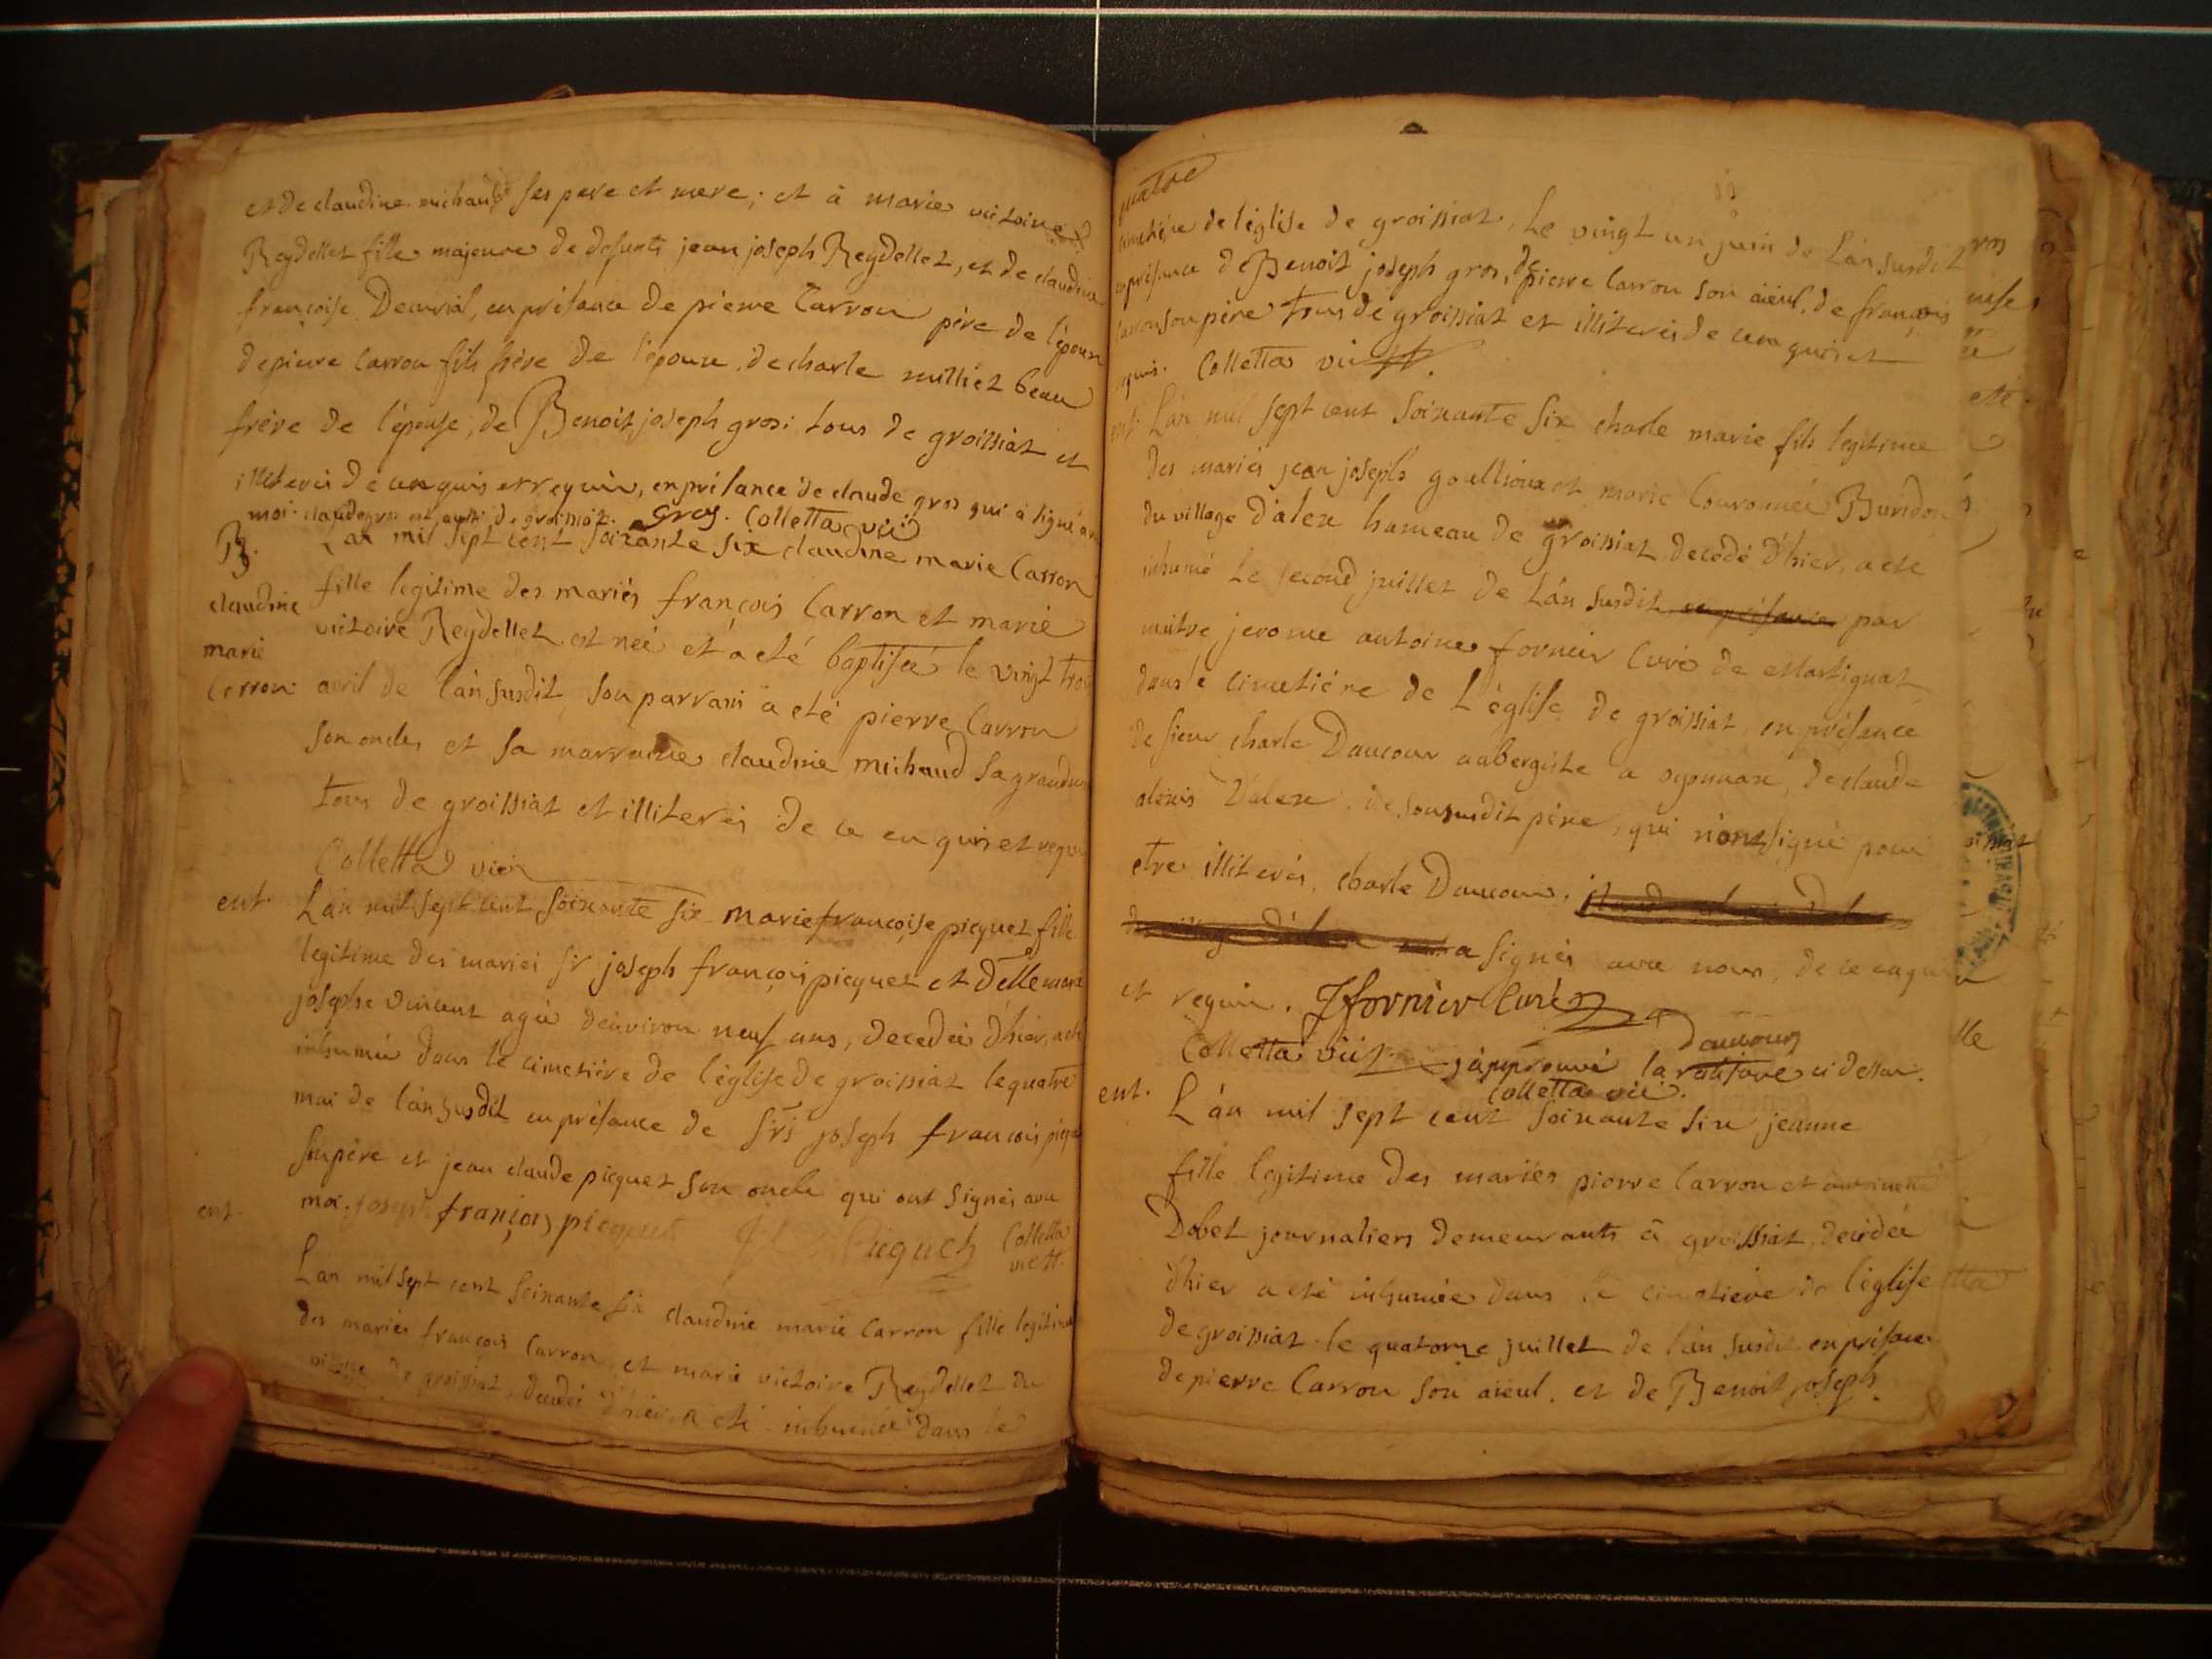 et de claudine michaud ses pere et mere; et à marie victoire
Reydellet fille majeure de defunts jean joseph Reydellet, et de claudine
françoise, en présance de pierre Carron père de l'époux
de pierre Carron fils frère de l'époux, de charle milliet beau
frère de l'épouse, de Benoit joseph gros; tous de groissiat et
illiterés de ce enquis et requis, en présance de claude gros qui à signé avec
moi. claude gros est aussi de groissiat. Gros. Colletta vic
B.
claudine
marie
Carron
L'an mil sept cent soixante six claudine marie Carron
fille legitime des mariés françois Carron et marie
victoire Reydellet est née et a eté baptisée le vingt trois
avril de l'an susdit, son parrain a eté pierre Carron
son oncle, et sa marraine claudine michaud sa grandmere
tous de groissiat et illiterés de ce enquis et requis
Colletta vic
ent. L'an mil sept cent soixante six marie françoise picquet fille
legitime des mariés sr joseph françois picquet et delle marie
josephe vincent agée d'environ neuf ans, decedée d'hier, a eté
inhumée dans le cimetière de l'église de groissiat le quatre
mai de l'an susdit en présance de srs joseph françois picquet
son père et jean claude picquet son oncle qui ont signés avec
moi. joseph françois picquet Picquet Colletta
vic
ent. L'an mil sept cent soixante six claudine marie Carron fille legitime
des mariés françois Carron, et marie victoire Reydellet du
village de groissiat, decedée d'hier, a eté inhumée dans le
quatre
cimetière de l'église de groissiat, le vingt un juin de l'an susdit
en présance de Benoit joseph gros, de pierre Carron son aieul, de françois
Carron son père tous de groissiat et illiterés de ce enquis et
requis. Colletta vic
ent. L'an mil sept cent soixante six charle marie fils legitime
des mariés jean joseph goullioux et marie Couronnée Buridon
du village d'alex hameau de groissiat decedé d'hier, a eté
inhumé le second juillet de l'an susdit par
maitre jerome antoine fornier Curé de Martignat
dans le cimetière de L'église de groissiat, en présance
de sieur charle Daucour aubergiste a oyonnax, de claude
alexis d'alex, de son susdit père, qui n'ont signé pour
etre illiterés, charle Daucour,
a signés avec nous, de ce enquis
et requis. Jfornier Curé
Daucour
Colletta vic j'approuve la rature ci dessus.
Colletta vic.
ent. L'án mil sept cent soixante six jeanne
fille legitime des mariés pierre Carron et
Dobet journaliers demeurants à groissiat, decedée
d'hier a eté inhumée dans le cimetière de l'église
de groissiat le quatorze juillet de l'an susdit en présance
de pierre Carron son aieul, et de Benoit joseph